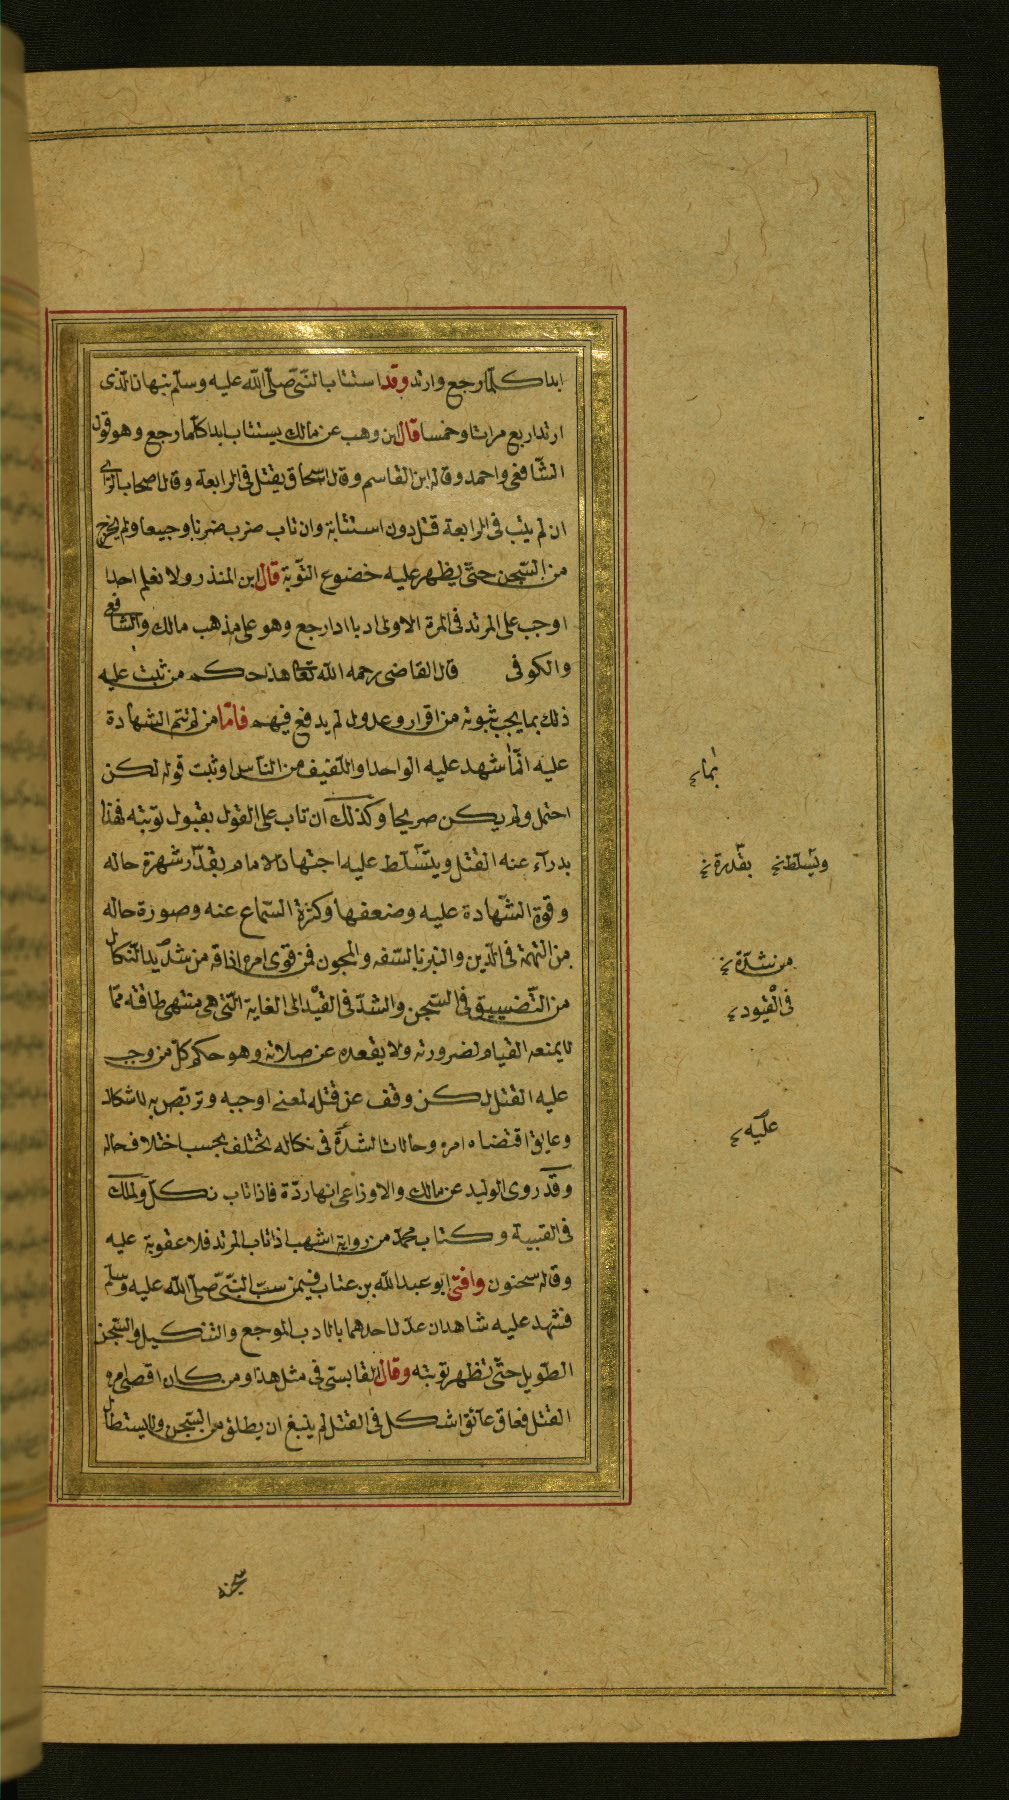 ابدا كلما رجع وارتد وقد استتاب النبي صلى الله عليه وسلم نبهان الذى
ارتد اربع مرات او خمسا قال ابن وهب عن مالك يستتاب ابدا كلما رجع وهو قول
الشافعى واحمد وقاله ابن القاسم وقال اسحاق يقتل فى الرابعة وقال اصحاب الراى
ان لم يتب فى الرابعة قتل دون استتابة وان تاب ضرب ضربا وجيعا ولم يخرج
من السجن حتى يظهر عليه خضوع التوبة قال ابن المنذر ولا نعلم احدا
اوجب على المرتد فى المرة الاولى ادبا اذا رجع وهو على مذهب مالك والشافعى
والكوفى قال القاضى رحمه الله تعا هذا حكم من ثبت عليه
ذلك بما يجب ثبوته من اقرار وعدول لم يدفع فيهم فاما من لم تتم الشهادة
عليه انما شهد عليه الواحد او اللفيف من الناس او ثبت قوله لكن
احتمل ولم يكن صريحا وكذلك ان تاب على القول بقبول توبته فهذا
يدرأ عنه القتل ويتسلط عليه اجتهاد الامام بقدر شهرة حاله
وقوة الشهادة عليه وضعفها وكثرة السماع عنه وصورة حاله
من التهمة فى الدين والنبز بالسفه والمجون فمن قوى امره اذاقه من شديد النكال
من التضييق فى السجن والشد فى القيد الى الغاية التى هى منتهى طاقته مما
لا يمنعه القيام لضرورته ولا يقعده عن صلاته وهو حكم كل من وجب
عليه القتل لكن وقف عن قتله لمعنى اوجبه وتربص به لاشكال
وعايق اقتضاه امره وحالات الشدة فى نكاله تختلف بحسب اختلاف حاله
وقد روى الوليد عن مالك والاوزاعى انها ردة فاذا تاب نكل ولمالك
فى العتبية وكتاب محمد من رواية اشهب اذا تاب المرتد فلا عقوبة عليه
وقاله سحنون وافتى ابو عبد الله بن عتاب فيمن سب النبى صلى الله عليه وسلم
فشهد عليه شاهدان عدل احدهما بالادب الموجع والتنكيل والسجن
الطويل حتى تظهر توبته وقال القابسى فى مثل هذا ومن كان اقصى امره
القتل فعاق عائق اشكل فى القتل لم ينبغ ان يطلق من السجن ولا يستطال
بما
وتسلط بقدرة
من شدة
فى القيود
عليه
سجنه